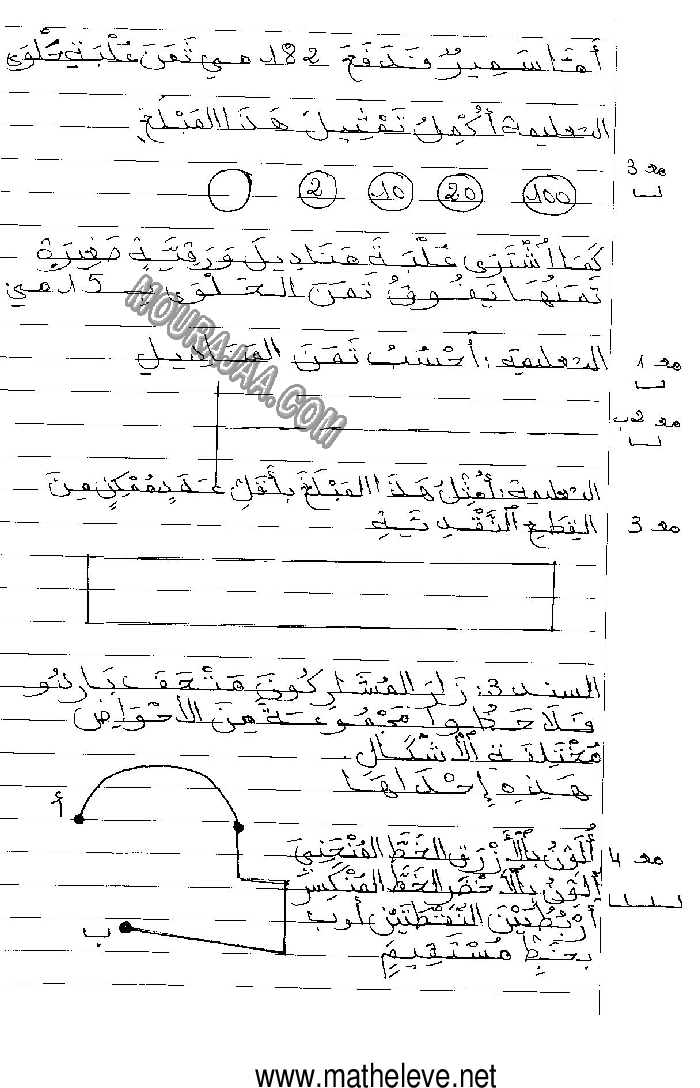 أَمَّا سَمِيرٌ فَدَفَعَ 182 مي ثَمَنَ عُلْبَةِ حَلْوَى
التعليمة: أُكْمِلُ تَمْثِيلَ هَذَا المَبْلَغِ
مع 3
100 20 10 2
كَمَا اُشْتَرَى عُلْبَةَ مَنَادِيلَ وَرَقِيَّةٍ صَغِيرَةٍ
ثَمَنُهَا يَفُوقُ ثَمَنَ الحَلْوَى بـ 15 مي
التعليمة: أَحْسُبُ ثَمَنَ المَنَادِيلِ
مع 1
مع 2 ب
التعليمة: أُمَثِّلُ هَذَا المَبْلَغَ بِأَقَلِّ عَدَدٍ مُمْكِنٍ مِنَ
القِطَعِ النَّقْدِيَّةِ
مع 3
السند 3: زَارَ المُشَارِكُونَ مَتْحَفَ بَارْدُو
فَلَاحَظُوا مَجْمُوعَةً مِنَ الأَحْوَاضِ
مُخْتَلِفَةِ الأَشْكَالِ.
هَذِهِ إِحْدَاهَا
أُلَوِّنُ بِالأَزْرَقِ الخَطَّ المُنْحَنِيَ
مع 4
أُلَوِّنُ بِالأَخْضَرِ الخَطَّ المُنْكَسِرَ
أَرْبُطُ بَيْنَ النُّقْطَتَيْنِ أ و ب
بِخَطٍّ مُسْتَقِيمٍ
أ
ب
MOURAJAA.COM
www.matheleve.net